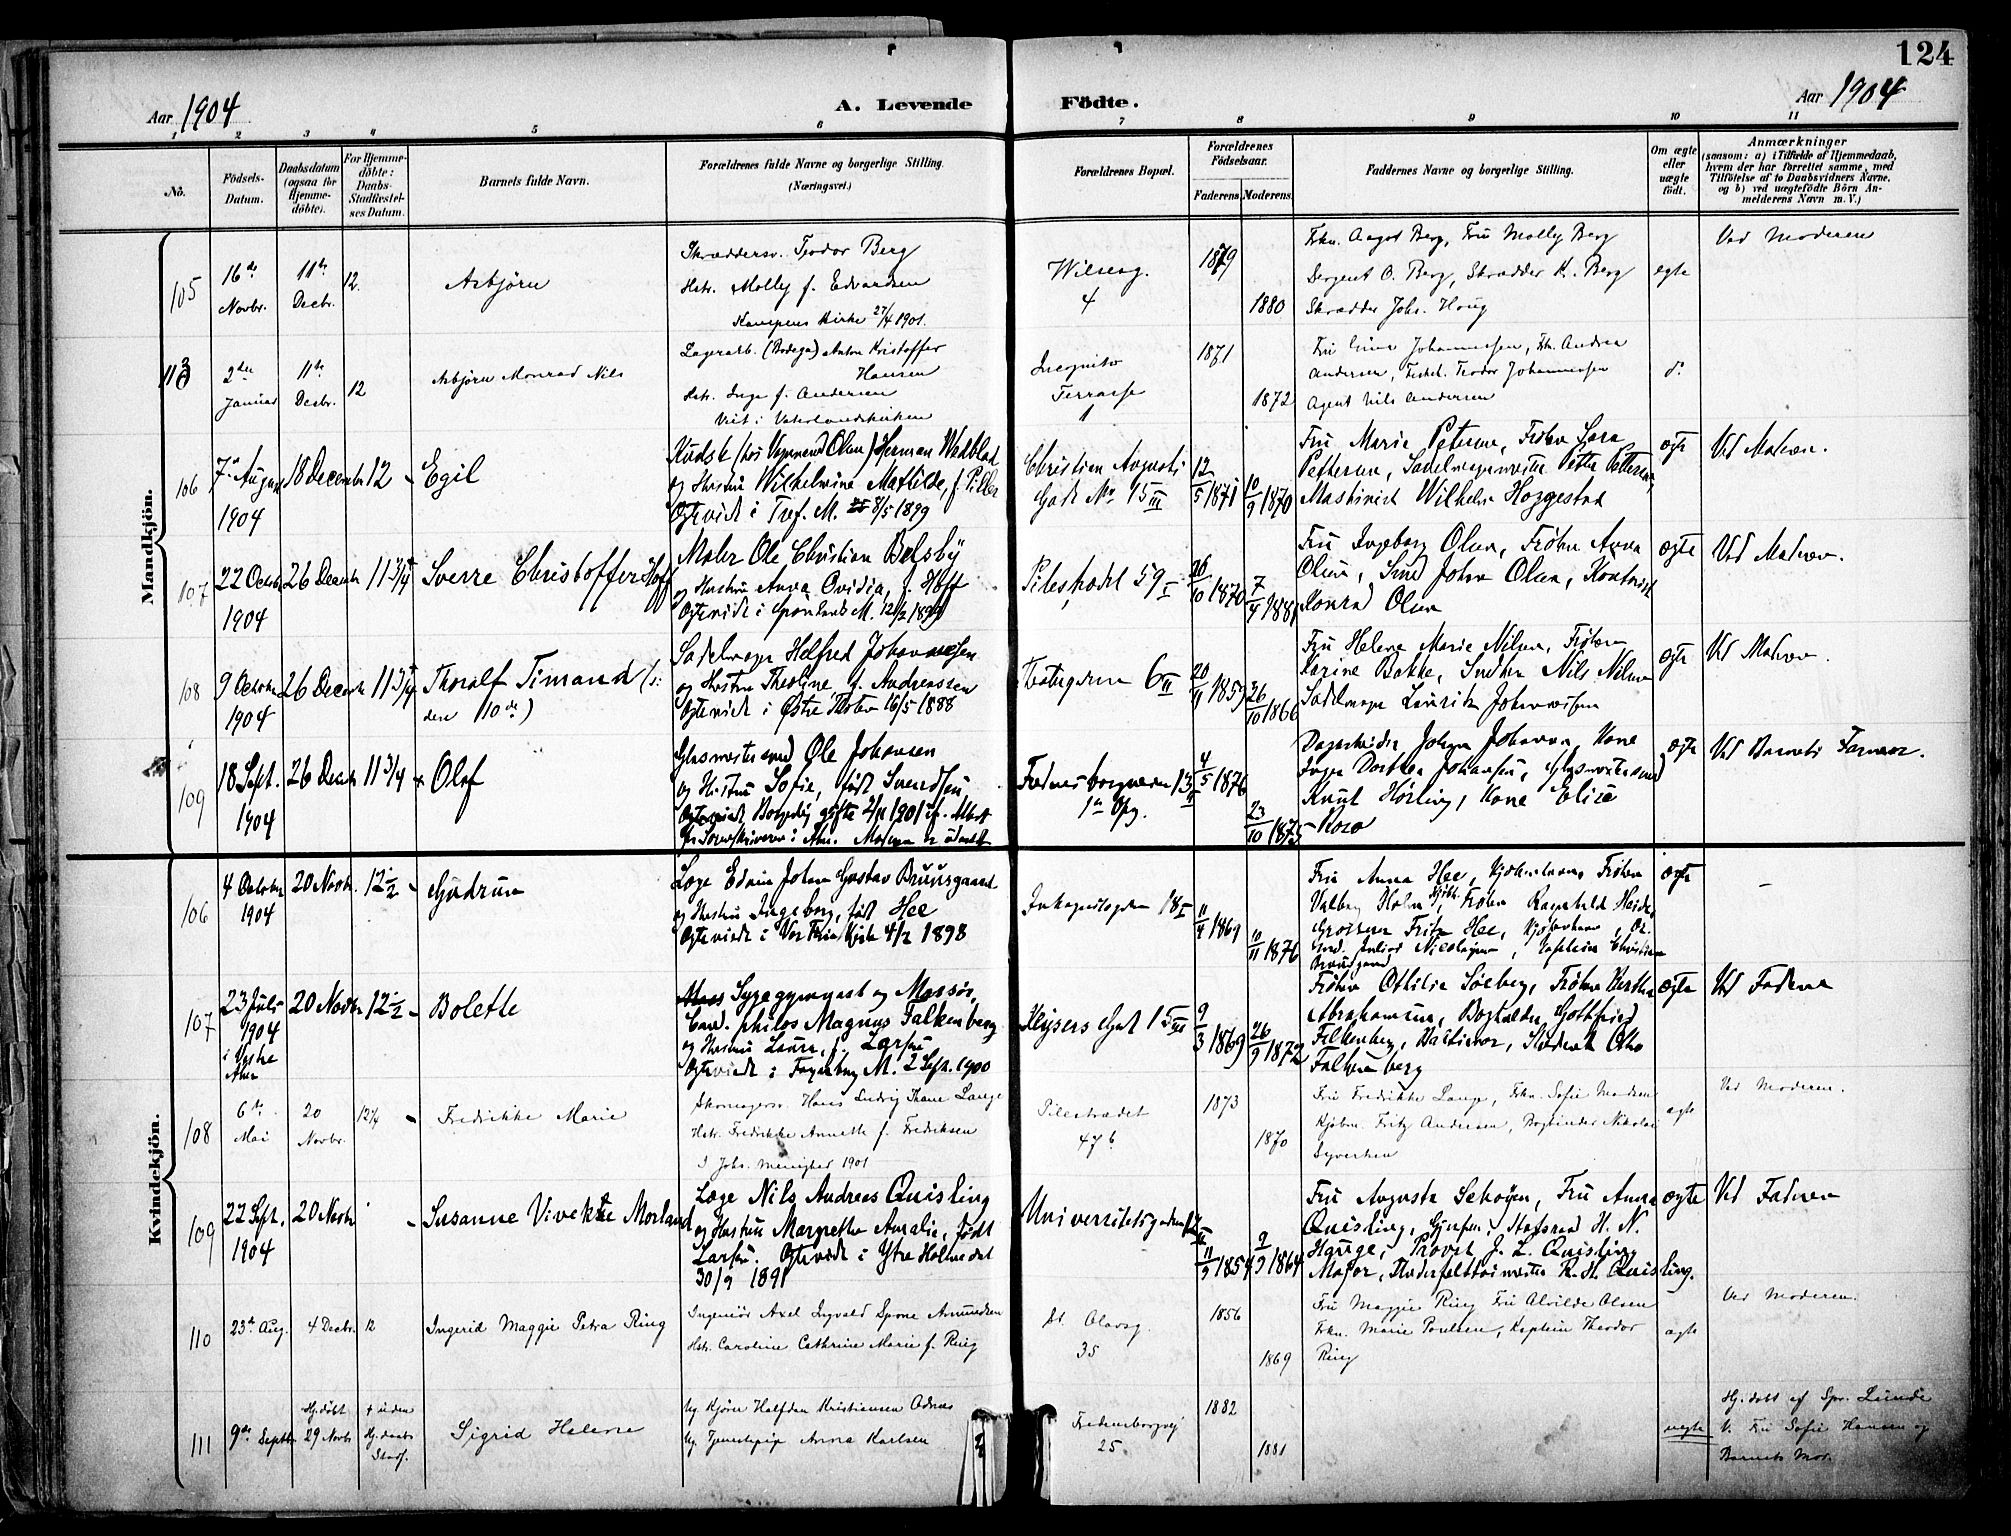 124
Aar 1904
A. Levende Födte.
Aar 1904
1 2 3 4 5 6 7 8 9 10 11
No.
Födsels-Datum.
Daabsdatum (ogsaa for Hjemme-döbte).
For Hjemme-döbte: Daabs-Stadfæstel-ses Datum.
Barnets fulde Navn.
Forældrenes fulde Navne og borgerlige Stilling.
(Næringsvei.)
Forældrenes Bopæl.
Forældrenes Födselsaar.
Faderens. Moderens.
Faddernes Navne og borgerlige Stilling.
Om ægte eller uægte födt.
Anmærkninger
(saasom: a) i Tilfælde af Hjemmedaab,
hvem der har forrettet samme, med
Tilföielse af to Daabsvidners Navne,
og b) ved uægtefödte Börn An-
melderens Navn m. V.)
Mandkjön.
105
16de Novbr.
11te Decbr.
12
Asbjörn
Skræddersv. Teodor Berg
Hstr. Molly f. Edvardsen
Kampens Kirke 27/4 1901.
Wilsesg.
4
1879
1880
Frkn. Aagot Berg, Fru Molly Berg
Sergent O. Berg, Skrædder K. Berg
Skrædder Johs. Haug
egte
Ved Moderen
2den Januar
11te Decbr.
12
Asbjörn Monrad Nils
Lagerarb. (Bodega) Anton Kristoffer
Hansen
Hstr. Inga f. Andersen
Viet i Vaterlandskirken
Incognito
Terrasse
1
1871
1872
Johannessen, Frk. Andrea
Andersen, Teodor Johannessen
Agent Nils Andersen
106
7de August 1904
18 December
12
Egil
Kudsk (hos Vognmand Olsen) Herman Wedblad
og Hustru Wilhelmine Mathilde, f. Piller
Ægteviede i Tref. M. 8/5 1899
Christian Augusts
Gade No 15 III
12/5 1871
10/9 1870
Fru Marie Petersen, Fröken Sara
Pettersen, Sadelmagermester Petter Pettersen,
Maskinist Wilhelm Haggestad
ægte
Ved Moderen.
107
22 October 1904
26 December
11 3/4
Sverre Christoffer Hoff
Maler Ole Christian Balsby
og Hustru Anna Ovidia, f. Hoff
Ægteviede i Grönlands M. 12/2 1899
Pilestrædet 59 I
20/10 1870
7/4 1881
Fru Ingeborg Olsen, Fröken Anna
Olsen, Smed Johan Olsen, Kontorist
Konrad Olsen
ægte
Ved Moderen.
108
9 October 1904
26 December
11 3/4
Thoralf Timand (s:
den 10de)
Sadelmager Helfred Johannessen
og Hustru Theoline f. Andreassen
Ægteviede i Östre Toten 16/5 1888
6 II
20/11 1859
26/10 1866
Fru Helene Marie Nilsen, Fröken
Karine Bakke, Snedker Nils Nilsen
Sadelmager Lauritz Johannessen
ægte
Ved Moderen.
109
18 Sept. 1904
26 Decembr
11 3/4
Olaf
Glasmestersvend Ole Johansen
og Hustru Sofie, födt Svendsen,
Ægteviede Borgerlig gifte 2/11 1901 if. Attest
fra Sorenskriveren i Aker. Moderen er udmeldt
Fredensborgveien 13 II
1ste Opg.
4/5 1876
23/10 1875
Dagarbeider Johan Johansen, Kone
Inger Dorthea Johansen, Glasmestersvend
Knut Hörling, Kone Elise
Rosa
ægte
Ved Barnets Farmor.
Kvindekjön.
106
4 October 1904
20 Novbr.
12 1/2
Gudrun
Læge Edvin Johan Gustav Bruusgaard
og Hustru Ingeborg, födt Hee
Ægteviede i Vor Frue Kirke 4/2 1898
18 I
11/4 1869
10/11 1876
Fru Anna Hee, Kjöbenhavn, Fröken
Valborg Holm Kjöbh., Fröken Ragnhild
Grosserer Fritz Hee, Kjöbenhavn,
med. Julius Nicolaysen, Kaptein Christian
Bruusgaard
ægte
–
107
23 Juli 1904
i Vestre Aker
20 Novbr
12 1/2
Bolette
Sygegymnast og Massör,
Cand. philos Magnus Falkenberg
og Hustru Laura, f. Larsen
Ægteviede i Fagerborg M. 2 Sept. 1900
Keysers Gade 15 III
9/3 1869
26/9 1872
Fröken Ottilie Söeberg, Fröken Bertha
Abrahamsen, Bogholder Gottfried
Falkenberg, Student Otto
Falkenberg
ægte
Ved Faderen
108
6te Mai
20 Novbr.
12 1/4
Fredrikke Marie
Skomagersv. Hans Ludvig Thane Lange
Hstr. Fredrikke Annette f. Fredriksen
I Johs. menighed 1901
Pilestrædet
47 b
1873
1870
Fru Fredrikke Lange, Frkn. Sofie Madsen
Kjöbm. Fritz Andersen, Bogbinder Nikolai
Syvertsen
egte
Ved Moderen.
109
22 Sept. 1904
20 Novbr
Susanne Vivekke Morland
Læge Nils Andreas Quisling
og Hustru Margrethe Amalie, födt
Larsen. Ægteviede i Ytre Holmedal
30/9 1891
Universitetsgaden 12
11/9 1854
9/9 1864
Fru Augusta Schöyen, Fru Anna
Quisling, Gjerpen, Statsraad H. N.
Hauge, Provst J. L. Quisling,
Major, Underfelttöimester R. H. Quisling.
ægte
Ved Faderen
110
23de Aug.
4 Decbr.
12
Ingerid Maggie Petra Ring
Ingeniör Axel Ingvald Sponne Amundsen
Hstr. Caroline Cathrine Marie f. Ring
St. Olavsg.
35
1856
1869
Fru Maggie Ring Fru Alvilde Olsen
Frkn. Marie Poulsen, Kaptein Theodor
Ring
egte
Ved Moderen.
111
9de Septbr
Hj.döbt
29 Novbr
† uden
Hj.daabs
Stadf.
Sigrid Helene
Ug. Kjörer Halfdan Kristiansen Odnæs
Ug. Tjenestepige Anna Karlsen
Fredensborgvej
25.
1882
1881
uegte
Hj.döbt af Spr. Lunde
V. Fru Sofie Hansen og
Barnets Mor.